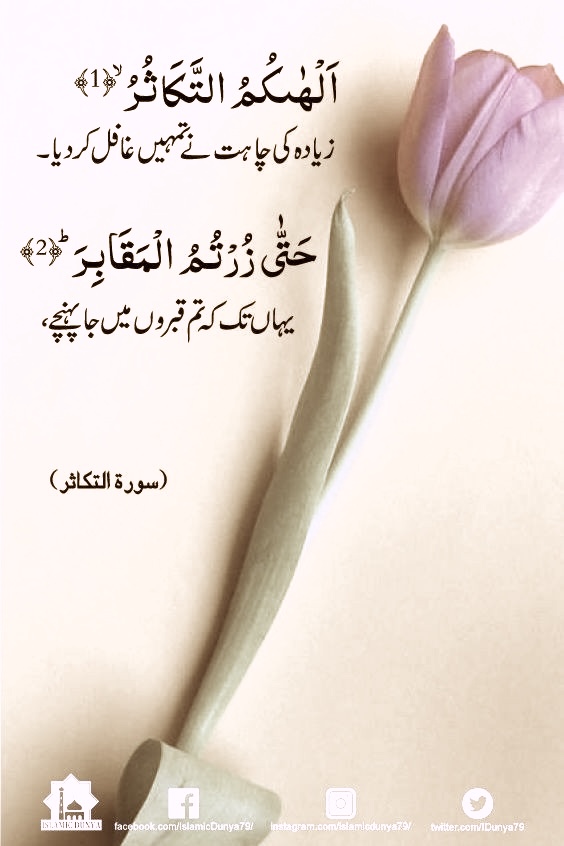 اَلْهٰىكُمُ التَّكَاثُرُۙ ﴿1﴾
زیادہ کی چاہت نے تمہیں غافل کر دیا۔
حَتّٰى زُرْتُمُ الْمَقَابِرَؕ ﴿2﴾
یہاں تک کہ تم قبروں میں جا پہنچے،
(سورۃ التکاثر)
ISLAMIC DUNYA
facebook.com/islamicDunya79/
instagram.com/islamicdunya79/
twitter.com/IDunya79